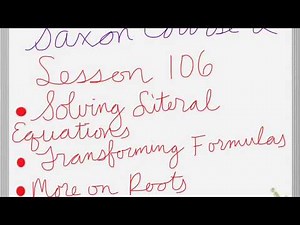 Saxon Course 2
Lesson 106
• Solving Literal
Equations
• Transforming Formulas
• More on Roots